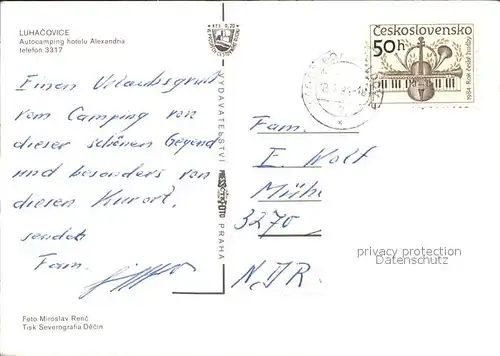 LUHAČOVICE
Autocamping hotelu Alexandria
telefon 3317
Einen Urlaubsgruß
vom Camping von
dieser schönen Gegend
und besonders von
diesen Kurort.
sendet
Fam.
Foto Miroslav Renč
Tisk Severografia Děčín
VYDAVATELSTVÍ
PRESSFOTO
PRAHA
Československo
50h
1984-Rok české hudby
Fam.
E. Wolf
Mühl
3270
N.D.R.
privacy protection
Datenschutz